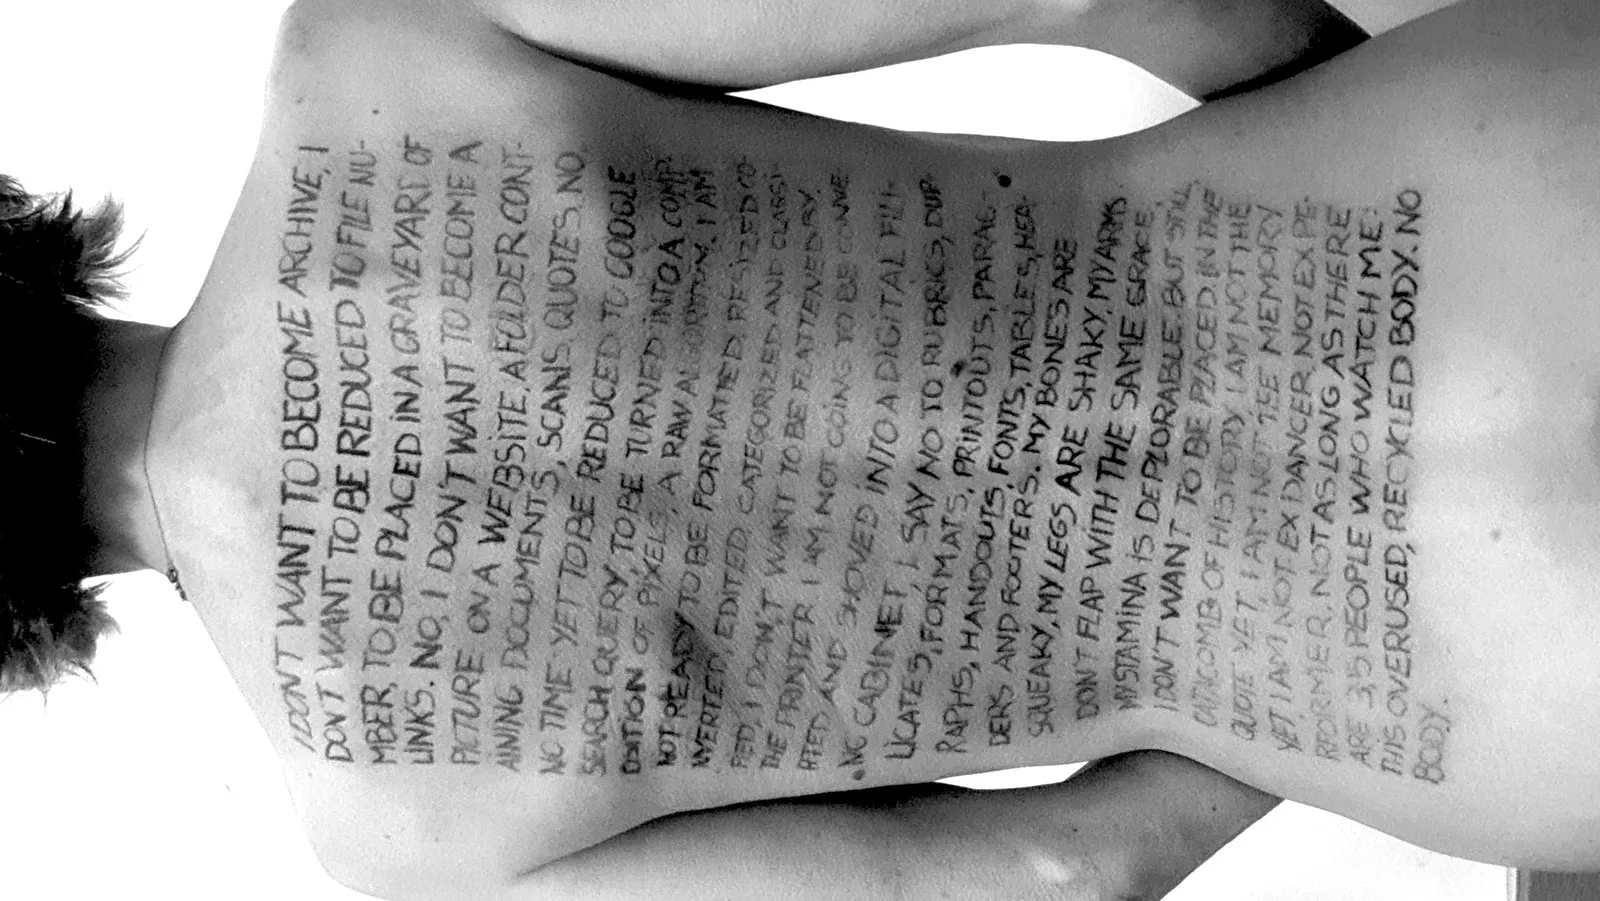 I DON'T WANT TO BECOME ARCHIVE, I
DON'T WANT TO BE REDUCED TO FILE NU-
MBER, TO BE PLACED IN A GRAVEYARD OF
LINKS. NO, I DON'T WANT TO BECOME A
PICTURE ON A WEBSITE, A FOLDER CONT-
AINING DOCUMENTS, SCANS, QUOTES. NO,
NO TIME YET TO BE REDUCED TO GOOGLE
SEARCH QUERY, TO BE TURNED INTO A COMP.
EDITION OF PIXELS, A RAW ALGORITHM. I AM
NOT READY TO BE FORMATTED, RESIZED, CO-
NVERTED, EDITED, CATEGORIZED AND CLASSI-
FIED, I DON'T WANT TO BE FLATTENED BY
THE PRINTER. I AM NOT GOING TO BE CONVE
RTED AND SHOVED INTO A DIGITAL FILI-
NG CABINET, I SAY NO TO RUBRICS, DUP-
LICATES, FORMATS, PRINTOUTS, PARAG-
RAPHS, HANDOUTS, FONTS, TABLES, HEA-
DERS AND FOOTERS. MY BONES ARE
SQUEAKY, MY LEGS ARE SHAKY, MY ARMS
DON'T FLAP WITH THE SAME GRACE,
MY STAMINA IS DEPLORABLE. BUT STILL,
I DON'T WANT TO BE PLACED IN THE
CATACOMB OF HISTORY. I AM NOT THE
QUOTE YET, I AM NOT THE MEMORY
YET. I AM NOT EX DANCER, NOT EX PE-
RFORMER. NOT AS LONG AS THERE
ARE 3,5 PEOPLE WHO WATCH ME:
THIS OVERUSED, RECYCLED BODY. NO
BODY.